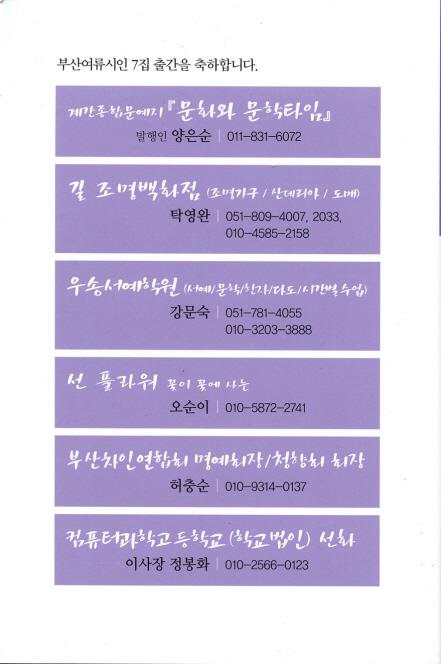 부산여류시인 7집 출간을 축하합니다.
계간종합문예지 『문화와 문학타임』
발행인 양은순 | 011-831-6072
길 조명백화점 (조명기구 / 샨데리아 / 도매)
탁영완 | 051-809-4007, 2033,
010-4585-2158
우송서예학원 (서예/문학/한자/다도/시간별 수업)
강문숙 | 051-781-4055
010-3203-3888
선 플라워 꽃이 꽃에 사는
오순이 | 010-5872-2741
부산차인연합회 명예회장/청향회 회장
허충순 | 010-9314-0137
컴퓨터과학고등학교 (학교법인) 선화
이사장 정봉화 | 010-2566-0123